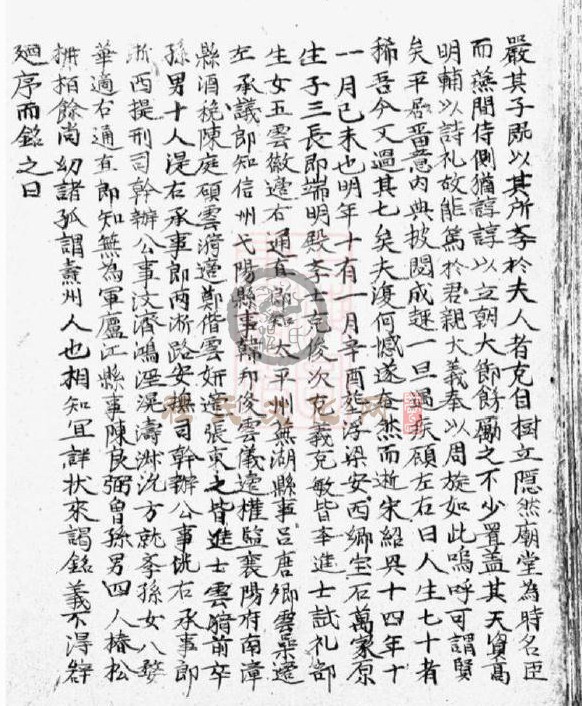 嚴其子既以其所孝於夫人者克自樹立隱然廟堂為時名臣
而燕間侍側猶諄諄以立朝大節飭勵之不少置蓋其天資高
明輔以詩礼故能篤於君親大義奉以周旋如此嗚呼可謂賢
矣平居留意内典披閱成誦一旦遇疾顧左右曰人生七十者
稀吾今又過其七矣夫復何憾遂奄然而逝宋紹興十四年十
一月己未也明年十有一月辛酉於浮梁安西鄉宝石萬家原
生子三長即端明殿李士克俊次克義克敏皆本進士試礼部
生女五雲徽適右通直郎知太平州蕪湖縣事吕唐卿雲巢適
左承議郎知信州弋陽縣事韓邦俊雲儀適權監襄陽府南漳
縣酒稅陳庭碩雲適鄭偕雲妍適張東之皆進士雲前卒
孫男十人湜右承事郎两淅路安撫司幹辦公事洸右承事郎
淅西提刑司幹辦公事汶濟鴻湮滉濤淋沈方就孝孫女八婺
華適右通直郎知無為軍廬江縣事陳良弼曾孫男四人椿松
栢餘尚幼諸孤謂熹州人也相知宜詳状來謁銘義不得辭
廼序而銘之曰